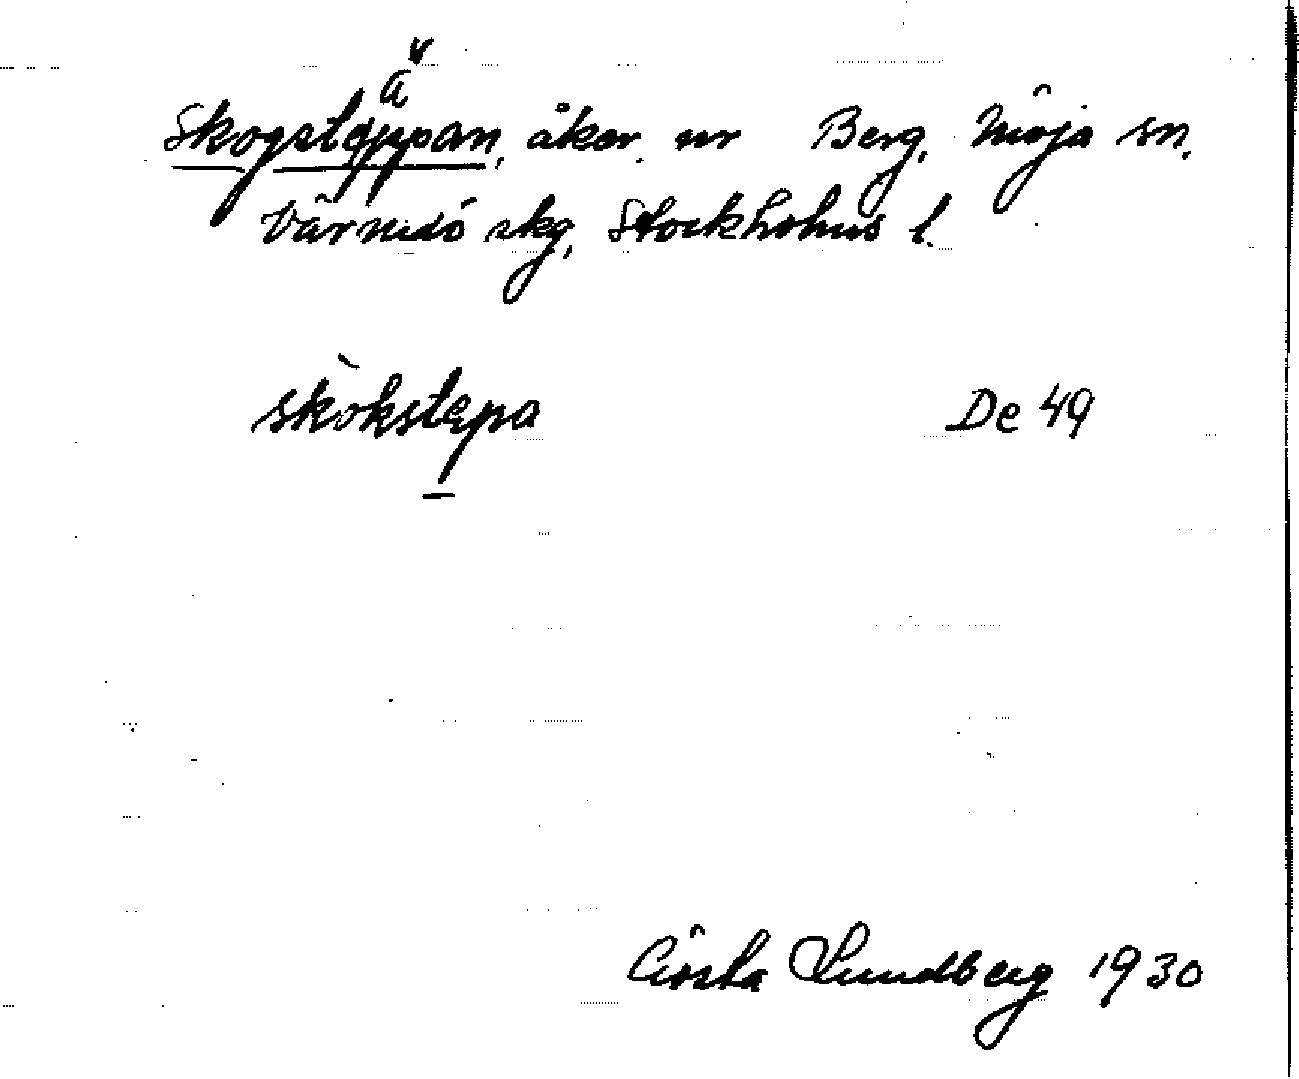 ä
Skogstäppan, åker nr Berg, Möja sn.
Värmdö skg, Stockholms l.
skòkstepa De 49
Gösta Lundberg 1930